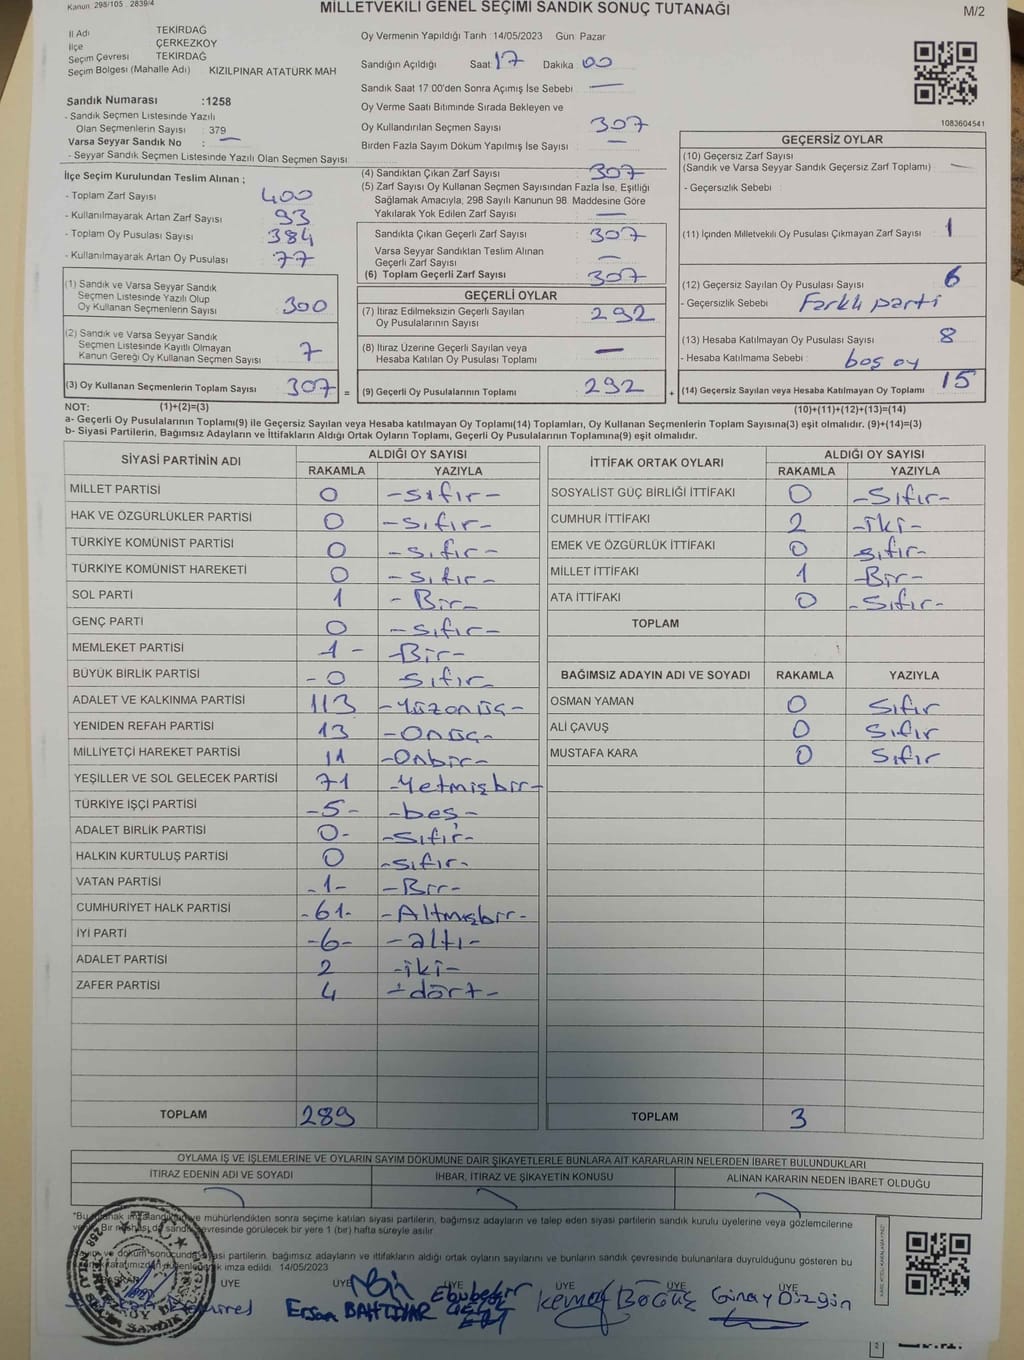 Kanun 298/105 2839/4
MİLLETVEKİLİ GENEL SEÇİMİ SANDIK SONUÇ TUTANAĞI
M/2
İl Adı TEKİRDAĞ
İlçe ÇERKEZKÖY
Seçim Çevresi TEKİRDAĞ
Seçim Bölgesi (Mahalle Adı) KIZILPINAR ATATÜRK MAH
Sandık Numarası :1258
- Sandık Seçmen Listesinde Yazılı
Olan Seçmenlerin Sayısı : 379
Varsa Seyyar Sandık No : —
- Seyyar Sandık Seçmen Listesinde Yazılı Olan Seçmen Sayısı
İlçe Seçim Kurulundan Teslim Alınan ;
- Toplam Zarf Sayısı 400
- Kullanılmayarak Artan Zarf Sayısı 93
- Toplam Oy Pusulası Sayısı 384
- Kullanılmayarak Artan Oy Pusulası 77
(1) Sandık ve Varsa Seyyar Sandık
Seçmen Listesinde Yazılı Olup
Oy Kullanan Seçmenlerin Sayısı 300
(2) Sandık ve Varsa Seyyar Sandık
Seçmen Listesinde Kayıtlı Olmayan
Kanun Gereği Oy Kullanan Seçmen Sayısı 7
(3) Oy Kullanan Seçmenlerin Toplam Sayısı 307 =
Oy Vermenin Yapıldığı Tarih :14/05/2023 Gün Pazar
Sandığın Açıldığı Saat 17 Dakika 00
Sandık Saat 17:00'den Sonra Açımış İse Sebebi —
Oy Verme Saati Bitiminde Sırada Bekleyen ve
Oy Kullandırılan Seçmen Sayısı 307
Birden Fazla Sayım Döküm Yapılmış İse Sayısı : —
(4) Sandıktan Çıkan Zarf Sayısı 307
(5) Zarf Sayısı Oy Kullanan Seçmen Sayısından Fazla İse, Eşitliği
Sağlamak Amacıyla, 298 Sayılı Kanunun 98. Maddesine Göre
Yakılarak Yok Edilen Zarf Sayısı : —
Sandıkta Çıkan Geçerli Zarf Sayısı : 307
Varsa Seyyar Sandıktan Teslim Alınan
Geçerli Zarf Sayısı : —
(6) Toplam Geçerli Zarf Sayısı : 307
GEÇERLİ OYLAR
(7) İtiraz Edilmeksizin Geçerli Sayılan
Oy Pusulalarının Sayısı : 292
(8) İtiraz Üzerine Geçerli Sayılan veya
Hesaba Katılan Oy Pusulası Toplamı : —
(9) Geçerli Oy Pusulalarının Toplamı : 292 +
1083604541
GEÇERSİZ OYLAR
(10) Geçersiz Zarf Sayısı
(Sandık ve Varsa Seyyar Sandık Geçersiz Zarf Toplamı) —
- Geçersizlik Sebebi :
(11) İçinden Milletvekili Oy Pusulası Çıkmayan Zarf Sayısı 1
(12) Geçersiz Sayılan Oy Pusulası Sayısı 6
- Geçersizlik Sebebi : Farklı parti
(13) Hesaba Katılmayan Oy Pusulası Sayısı 8
- Hesaba Katılmama Sebebi : boş oy
(14) Geçersiz Sayılan veya Hesaba Katılmayan Oy Toplamı 15
NOT: (1)+(2)=(3) (10)+(11)+(12)+(13)=(14)
a- Geçerli Oy Pusulalarının Toplamı(9) ile Geçersiz Sayılan veya Hesaba katılmayan Oy Toplamı(14) Toplamları, Oy Kullanan Seçmenlerin Toplam Sayısına(3) eşit olmalıdır. (9)+(14)=(3)
b- Siyasi Partilerin, Bağımsız Adayların ve İttifakların Aldığı Ortak Oyların Toplamı, Geçerli Oy Pusulalarının Toplamına(9) eşit olmalıdır.
SİYASİ PARTİNİN ADI ALDIĞI OY SAYISI
RAKAMLA YAZIYLA
MİLLET PARTİSİ 0 -sıfır-
HAK VE ÖZGÜRLÜKLER PARTİSİ 0 -sıfır-
TÜRKİYE KOMÜNİST PARTİSİ 0 -sıfır-
TÜRKİYE KOMÜNİST HAREKETİ 0 -sıfır-
SOL PARTİ 1 -Bir-
GENÇ PARTİ 0 -sıfır-
MEMLEKET PARTİSİ 1- -Bir-
BÜYÜK BİRLİK PARTİSİ -0 sıfır-
ADALET VE KALKINMA PARTİSİ 113 -Yüzonüç-
YENİDEN REFAH PARTİSİ 13 -Onüç-
MİLLİYETÇİ HAREKET PARTİSİ 11 -Onbir-
YEŞİLLER VE SOL GELECEK PARTİSİ 71 -Yetmişbir-
TÜRKİYE İŞÇİ PARTİSİ -5- -beş-
ADALET BİRLİK PARTİSİ 0- -sıfır-
HALKIN KURTULUŞ PARTİSİ 0 -sıfır-
VATAN PARTİSİ -1- -Bir-
CUMHURİYET HALK PARTİSİ -61- -Altmışbir-
İYİ PARTİ -6- -altı-
ADALET PARTİSİ 2 -iki-
ZAFER PARTİSİ 4 -dört-
TOPLAM 289
İTTİFAK ORTAK OYLARI ALDIĞI OY SAYISI
RAKAMLA YAZIYLA
SOSYALİST GÜÇ BİRLİĞİ İTTİFAKI 0 -Sıfır-
CUMHUR İTTİFAKI 2 -iki-
EMEK VE ÖZGÜRLÜK İTTİFAKI 0 sıfır-
MİLLET İTTİFAKI 1 -Bir-
ATA İTTİFAKI 0 -Sıfır-
TOPLAM
BAĞIMSIZ ADAYIN ADI VE SOYADI RAKAMLA YAZIYLA
OSMAN YAMAN 0 Sıfır
ALİ ÇAVUŞ 0 Sıfır
MUSTAFA KARA 0 Sıfır
TOPLAM 3
OYLAMA İŞ VE İŞLEMLERİNE VE OYLARIN SAYIM DÖKÜMÜNE DAİR ŞİKAYETLERLE BUNLARA AİT KARARLARIN NELERDEN İBARET BULUNDUKLARI
İTİRAZ EDENİN ADI VE SOYADI İHBAR, İTİRAZ VE ŞİKAYETİN KONUSU ALINAN KARARIN NEDEN İBARET OLDUĞU
mühürlendikten sonra seçime katılan siyasi partilerin, bağımsız adayların ve talep eden siyasi partilerin sandık kurulu üyelerine veya gözlemcilerine
çevresinde görülecek bir yere 1 (bir) hafta süreyle asılır
siyasi partilerin, bağımsız adayların ve ittifakların aldığı ortak oyların sayılarını ve bunların sandık çevresinde bulunanlara duyrulduğunu gösteren bu
imza edildi. 14/05/2023
BAŞKAN ÜYE ÜYE ÜYE ÜYE ÜYE ÜYE
Ersan BAHTİYAR Ebubekir Kemal Böğüç Günay Düzgün